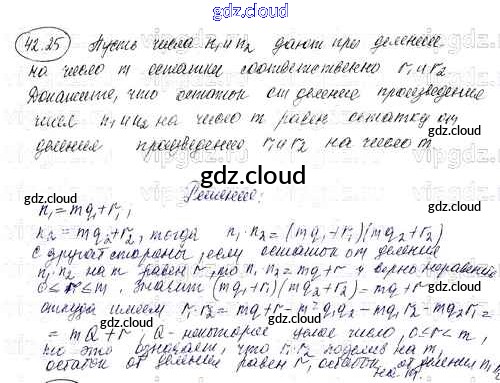 gdz.cloud
42.25 Пусть числа n₁ и n₂ дают при делении
на число m остатки соответственно r₁ и r₂
Докажите, что остаток от деления произведения
чисел n₁ и n₂ на число m равен остатку от
деления произведения r₁ и r₂ на число m.
gdz.cloud
gdz.cloud
Решение:
gdz.cloud
n₁ = mq₁ + r₁;
gdz.cloud
n₂ = mq₂ + r₂, тогда n₁ · n₂ = (mq₁ + r₁)(mq₂ + r₂)
С другой стороны, если остаток от деления
n₁ n₂ на m равен r, то n₁ n₂ = mq + r и верно неравенство
0 ≤ r ≤ m. Значит (mq₁ + r₁)(mq₂ + r₂) = mq + r
откуда имеем r₁ r₂ = mq + r - m² q₁ q₂ - mq₁ r₂ - mq₂ r₁ =
= mQ + r, Q - некоторое целое число, 0 ≤ r < m,
но это означает, что r₁ r₂ поделив на m,
остаток от деления равен r, остаток от деления n₁ n₂
на m.
gdz.cloud
gdz.cloud